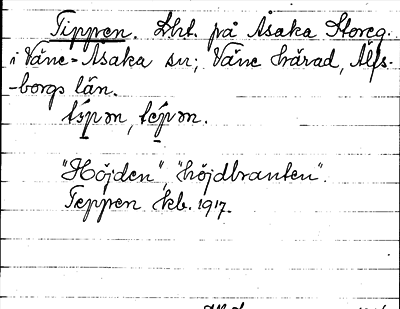 Tippren. Lht. på Åsaka Storeg.
i Väne-Åsaka sn; Väne härad, Älfs-
-borgs län.
"Höjden", "höjdbranten".
Teppren kb. 1917.